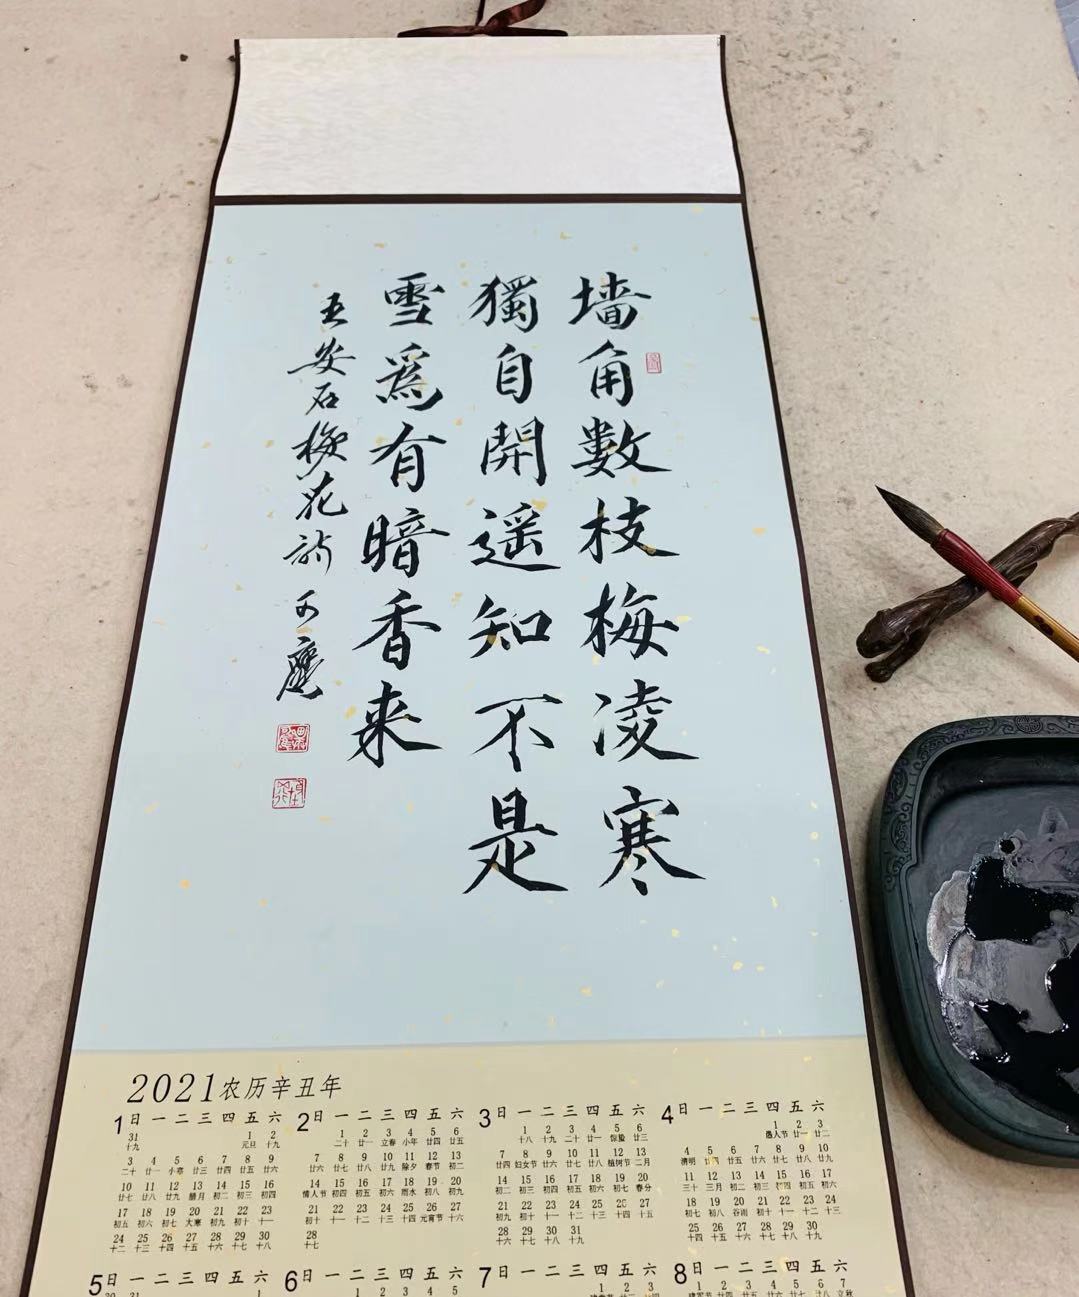 墙角數枝梅凌寒
獨自開遥知不是
雪爲有暗香来
王安石梅花詩
2021农历辛丑年
1 日 一 二 三 四 五 六
31 1 2
十九 元旦 十九
3 4 5 6 7 8 9
二十 廿一 小寒 廿三 廿四 廿五 廿六
10 11 12 13 14 15 16
廿七 廿八 廿九 腊月 初二 初三 初四
17 18 19 20 21 22 23
初五 初六 初七 大寒 初九 初十 十一
24 25 26 27 28 29 30
十二 十三 十四 十五 十六 十七 十八
2 日 一 二 三 四 五 六
1 2 3 4 5 6
二十 廿一 立春 小年 廿四 廿五
7 8 9 10 11 12 13
廿六 廿七 廿八 廿九 除夕 春节 初二
14 15 16 17 18 19 20
情人节 初四 初五 初六 雨水 初八 初九
21 22 23 24 25 26 27
初十 十一 十二 十三 十四 元宵节 十六
28
十七
3 日 一 二 三 四 五 六
1 2 3 4 5 6
十八 十九 二十 廿一 惊蛰 廿三
7 8 9 10 11 12 13
廿四 妇女节 廿六 廿七 廿八 植树节 二月
14 15 16 17 18 19 20
初二 初三 初四 初五 初六 初七 春分
21 22 23 24 25 26 27
初九 初十 十一 十二 十三 十四 十五
28 29 30 31
十六 十七 十八 十九
4 日 一 二 三 四 五 六
1 2 3
愚人节 廿一 廿二
4 5 6 7 8 9 10
清明 廿四 廿五 廿六 廿七 廿八 廿九
11 12 13 14 15 16 17
三十 三月 初二 初三 初四 初五 初六
18 19 20 21 22 23 24
初七 初八 谷雨 初十 十一 十二 十三
25 26 27 28 29 30
十四 十五 十六 十七 十八 十九
5 日 一 二 三 四 五 六
6 日 一 二 三 四 五 六
1 2 3 4 5
7 日 一 二 三 四 五 六
1 2 3
8 日 一 二 三 四 五 六
1 2 3 4 5 6 7